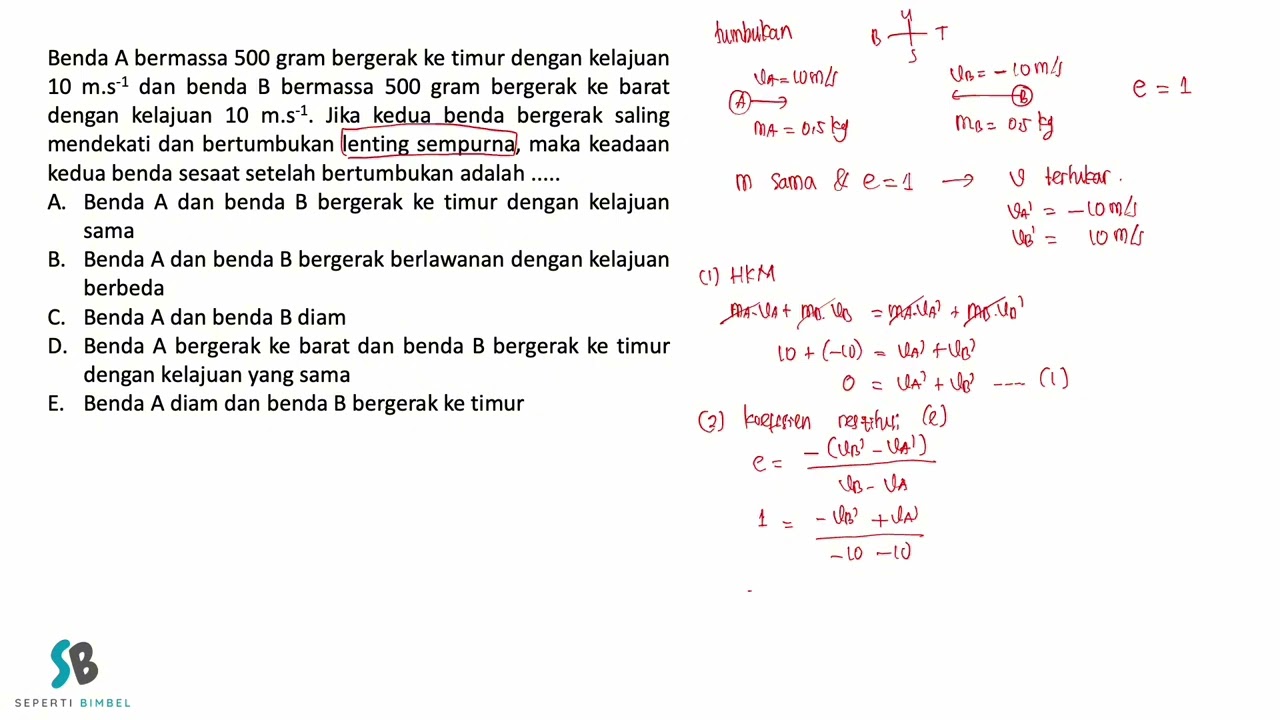 Benda A bermassa 500 gram bergerak ke timur dengan kelajuan
10 m.s⁻¹ dan benda B bermassa 500 gram bergerak ke barat
dengan kelajuan 10 m.s⁻¹. Jika kedua benda bergerak saling
mendekati dan bertumbukan lenting sempurna, maka keadaan
kedua benda sesaat setelah bertumbukan adalah .....
A. Benda A dan benda B bergerak ke timur dengan kelajuan
sama
B. Benda A dan benda B bergerak berlawanan dengan kelajuan
berbeda
C. Benda A dan benda B diam
D. Benda A bergerak ke barat dan benda B bergerak ke timur
dengan kelajuan yang sama
E. Benda A diam dan benda B bergerak ke timur
tumbukan
U
B T
S
vA = 10 m/s
A
mA = 0,5 kg
vB = -10 m/s
B
mB = 0,5 kg
e = 1
m sama & e = 1 → v tertukar.
vA' = -10 m/s
vB' = 10 m/s
(1) HKM
mA.vA + mB.vB = mA.vA' + mB.vB'
10 + (-10) = vA' + vB'
0 = vA' + vB' ---- (1)
(2) koefisien restitusi (e)
e = -(vB' - vA') / vB - vA
1 = -vB' + vA' / -10 - 10
SB
SEPERTI BIMBEL